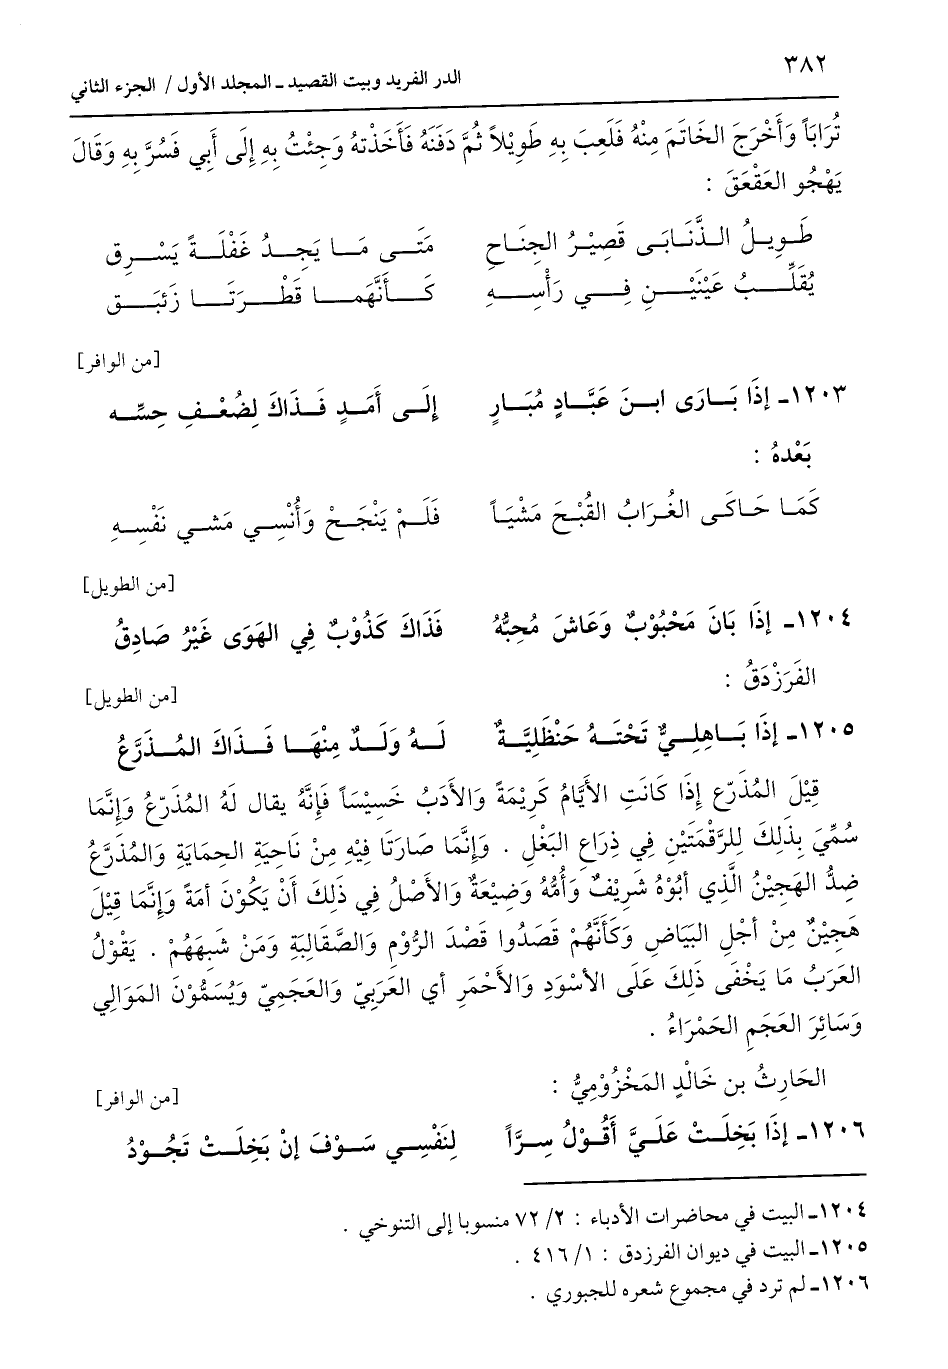 ٣٨٢
الدر الفريد وبيت القصيد ـ المجلد الأول / الجزء الثاني
تُرَابَاً وَأَخْرَجَ الخَاتَمَ مِنْهُ فَلَعِبَ بِهِ طَوِيْلاً ثُمَّ دَفَنَهُ فَأَخَذْتهُ وَجِئْتُ بِهِ إِلَى أَبِي فَسُرَّ بِهِ وَقَالَ
يَهْجُو العَقْعَقَ :
طَوِيلُ الذُّنَابَى قَصِيْرُ الجنَاحِ مَتَى مَا يَجِدُ غَفْلَةً يَسْرِق
يُقَلِّبُ عَيْنَيْنِ فِي رَأْسِهِ كَأَنَّهمَا قَطْرَتَا زَئبَقِ
[من الوافر]
١٢٠٣ـ إذَا بَارَى ابنَ عَبَّادٍ مُبَارٍ إِلَى أَمَدٍ فَذَاكَ لِضُعْفِ حِسِّه
بَعْدهُ :
كَمَا حَاكَى الغُرَابُ القُبْحَ مَشْيَاً فَلَمْ يَنْجَحْ وَأُنْسِي مَشي نَفْسِهِ
[من الطويل]
١٢٠٤ـ إذَا بَانَ مَحْبُوْبٌ وَعَاشَ مُحِبُّهُ فَذَاكَ كَذُوْبٌ فِي الهَوَى غَيْرُ صَادِقُ
الفَرَزْدَقُ :
[من الطويل]
١٢٠٥ـ إذَا بَاهِلِيٌّ تَحْتَهُ حَنْظَلِيَّةٌ لَهُ وَلَدٌ مِنْهَا فَذَاكَ المُذَرَّعُ
قِيْلَ المُذَرّع إِذَا كَانَتِ الأَيَّامُ كَرِيْمَةً وَالأَدَبُ خَسِيْسَاً فَإِنَّهُ يقال لَهُ المُذَرّعُ وَإِنَّمَا
سُمِّيَ بِذَلِكَ لِلرَّقْمَتَيْنِ فِي ذِرَاعِ البَغْلِ . وَإِنَّمَا صَارَتَا فِيْهِ مِنْ نَاحِيَةِ الحِمَايَةِ وَالمُذَرَّعُ
ضِدُّ الهَجِيْنُ الَّذِي أَبُوْهُ شَرِيْفٌ وَأُمُّهُ وَضِيْعَةٌ وَالأَصْلُ فِي ذَلِكَ أَنْ يَكُوْنَ أمَةً وَإِنَّمَا قِيْلَ
هَجِيْنٌ مِنْ أجْلِ البَيَاضِ وَكَأَنَّهُمْ قَصَدُوا قَصْدَ الرُّوْمِ وَالصَّقَالِبَةِ وَمَنْ شَبِهَهُمْ . يَقُوْلُ
العَرَبُ مَا يَخْفَى ذَلِكَ عَلَى الأَسْوَدِ وَالأَحْمَرِ أي العَرَبيّ وَالعَجَمِيّ وَيُسَمُّوْنَ المَوَالِي
وَسَائِرَ العَجَمِ الحَمْرَاءُ .
الحَارِثُ بن خَالْدٍ المَخْزُوْمِيُّ :
[من الوافر]
١٢٠٦ـ إذَا بَخِلَتْ عَلَيَّ أَقُوْلُ سِرَّاً لِنَفْسِي سَوْفَ إنْ بَخِلَتْ تَجُوْدُ
١٢٠٤ـ البيت في محاضرات الأدباء : ٢/ ٧٢ منسوبا إلى التنوخي .
١٢٠٥ـ البيت في ديوان الفرزدق : ١/ ٤١٦ .
١٢٠٦ـ لم ترد في مجموع شعره للجبوري .